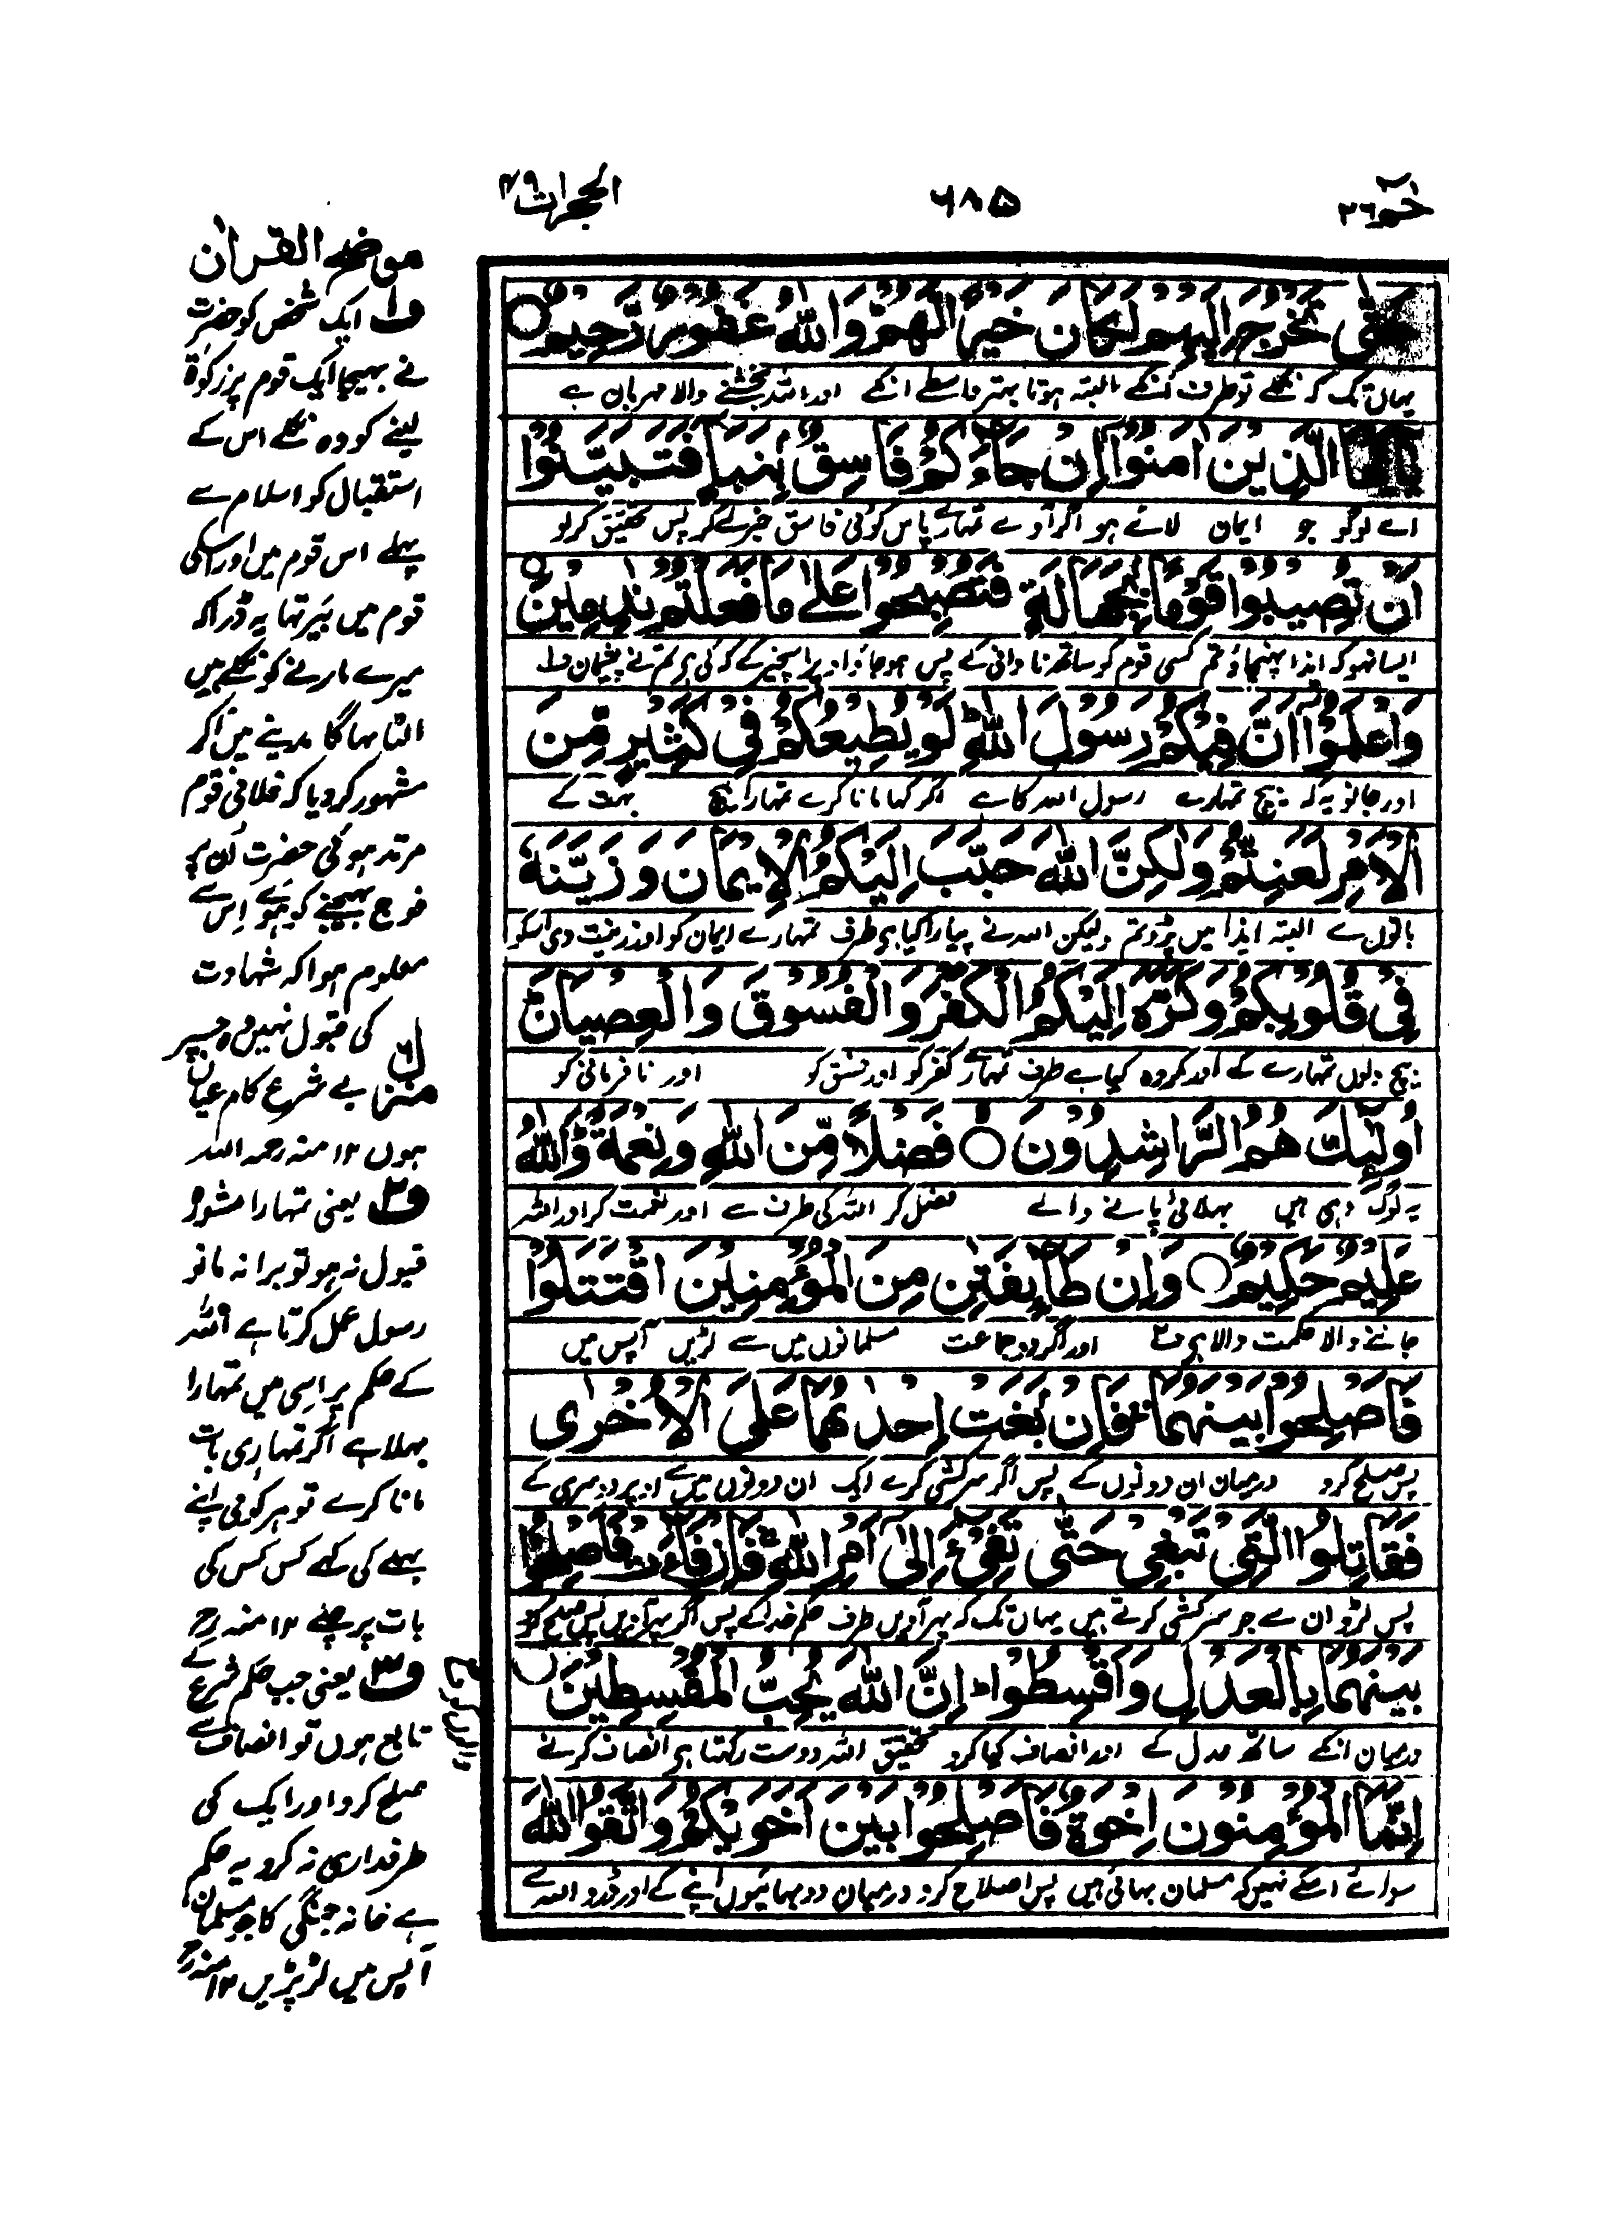 حٰمٓ ٢٦
٦٨٥
الحجرات ٤٩
حَتّٰى تَخْرُجَ اِلَيْهِمْ لَكَانَ خَيْرًا لَّهُمْ وَاللّٰهُ غَفُوْرٌ رَّحِيْمٌ ○
یہاں تک کہ نکلے تو طرف اُنکے البتہ ہوتا بہتر واسطے انکے اور اللہ بخشنے والا مہربان ہے
يٰٓاَيُّهَا الَّذِيْنَ اٰمَنُوْٓا اِنْ جَآءَكُمْ فَاسِقٌۢ بِنَبَاٍ فَتَبَيَّنُوْٓا
اے لوگو جو ایمان لائے ہو اگر آوے تمہارے پاس کوئی فاسق خبر لے کر پس تحقیق کر لو
اَنْ تُصِيْبُوْا قَوْمًۢا بِجَهَالَةٍ فَتُصْبِحُوْا عَلٰى مَا فَعَلْتُمْ نٰدِمِيْنَ ○
ایسا نہو کہ ایذا پہنچاؤ تم کسی قوم کو ساتھ نادانی کے پس ہو جاؤ اوپر اس چیز کے کہ کی ہی تم نے پشیمان ف١
وَاعْلَمُوْٓا اَنَّ فِيْكُمْ رَسُوْلَ اللّٰهِ ؕ لَوْ يُطِيْعُكُمْ فِيْ كَثِيْرٍ مِّنَ
اور جانو یہ کہ بیچ تمہارے رسول اللہ کا ہے اگر کہا مانا کرے تمہارا بیچ بہت کے
الْاَمْرِ لَعَنِتُّمْ وَلٰكِنَّ اللّٰهَ حَبَّبَ اِلَيْكُمُ الْاِيْمَانَ وَزَيَّنَهٗ
باتوں سے البتہ ایذا میں پڑو تم ولیکن اللہ نے پیارا کیا ہی طرف تمہارے ایمان کو اور زینت دی اسکو
فِيْ قُلُوْبِكُمْ وَكَرَّهَ اِلَيْكُمُ الْكُفْرَ وَالْفُسُوْقَ وَالْعِصْيَانَ ؕ
بیچ دلوں تمہارے کے اور مکروہ کیا ہے طرف تمہارے کفر کو اور فسق کو اور نافرمانی کو
اُولٰٓئِكَ هُمُ الرّٰشِدُوْنَ ○ فَضْلًا مِّنَ اللّٰهِ وَنِعْمَةً ؕ وَاللّٰهُ
یہ لوگ وہی ہیں بھلائی پانے والے فضل کر اللہ کی طرف سے اور نعمت کر اور اللہ
عَلِيْمٌ حَكِيْمٌ ○ وَاِنْ طَآئِفَتٰنِ مِنَ الْمُؤْمِنِيْنَ اقْتَتَلُوْا
جاننے والا حکمت والا ہی ف٢ اور اگر دو جماعت مسلمانوں میں سے لڑیں آپس میں
فَاَصْلِحُوْا بَيْنَهُمَا ۚ فَاِنْۢ بَغَتْ اِحْدٰىهُمَا عَلَى الْاُخْرٰى
پس صلح کرو درمیان ان دونوں کے پس اگر سرکشی کرے ایک ان دونوں میں سے اوپر دوسری کے
فَقَاتِلُوا الَّتِيْ تَبْغِيْ حَتّٰى تَفِيْٓءَ اِلٰٓى اَمْرِ اللّٰهِ ۚ فَاِنْ فَآءَتْ فَاَصْلِحُوْا
پس لڑو ان سے جو سرکشی کرتے ہیں یہاں تک کہ پھر آویں طرف حکم خدا کے پس اگر پھر آویں پس صلح کرو
بَيْنَهُمَا بِالْعَدْلِ وَاَقْسِطُوْا ؕ اِنَّ اللّٰهَ يُحِبُّ الْمُقْسِطِيْنَ ○
درمیان انکے ساتھ عدل کے اور انصاف کیا کرو تحقیق اللہ دوست رکھتا ہی انصاف کرنے
اِنَّمَا الْمُؤْمِنُوْنَ اِخْوَةٌ فَاَصْلِحُوْا بَيْنَ اَخَوَيْكُمْ وَاتَّقُوا اللّٰهَ
سوائے اسکے نہیں کہ مسلمان بھائی ہیں پس اصلاح کرو درمیان دو بھائیوں اپنے کے اور ڈرو اللہ سے
موضح القراٰن
ف١ ایک شخص کو حضرت
نے بھیجا ایک قوم پر زکوٰة
لینے کو وہ نکلے اس کے
استقبال کو اسلام سے
پہلے اس قوم میں اور اسکی
قوم میں بَیر تھا یہ ڈرا کہ
میرے مارنے کو نکلے ہیں
الٹا بھاگا مدینے میں آکر
مشہور کر دیا کہ فلانی قوم
مرتد ہو گئی حضرت اُن پر
فوج بھیجنے کو تھے اِس سے
معلوم ہوا کہ شہادت
کی قبول نہیں وہ جسپر
بے شرع کام عیاں
ہوں ١٢ منہ رحمہ اللہ
منزل ٦
ف٢ یعنی تمہارا مشورہ
قبول نہ ہو تو برا نہ مانو
رسول عمل کرتا ہے اللہ
کے حکم پر اسی میں تمہارا
بھلا ہے اگر تمہاری بات
مانا کرے تو ہر کوئی اپنے
بھلے کی کہے کس کس کی
بات پر چلے ١٢ منہ رح
ف٣ یعنی جب حکم شرع کے
تابع ہوں تو انصاف سے
صلح کرو اور ایک کی
طرفداری نہ کرو یہ حکم
ہے خانہ جنگی کا جو مسلمان
آپس میں لڑ پڑیں ١٢ منہ رح
والوں کو ف٣